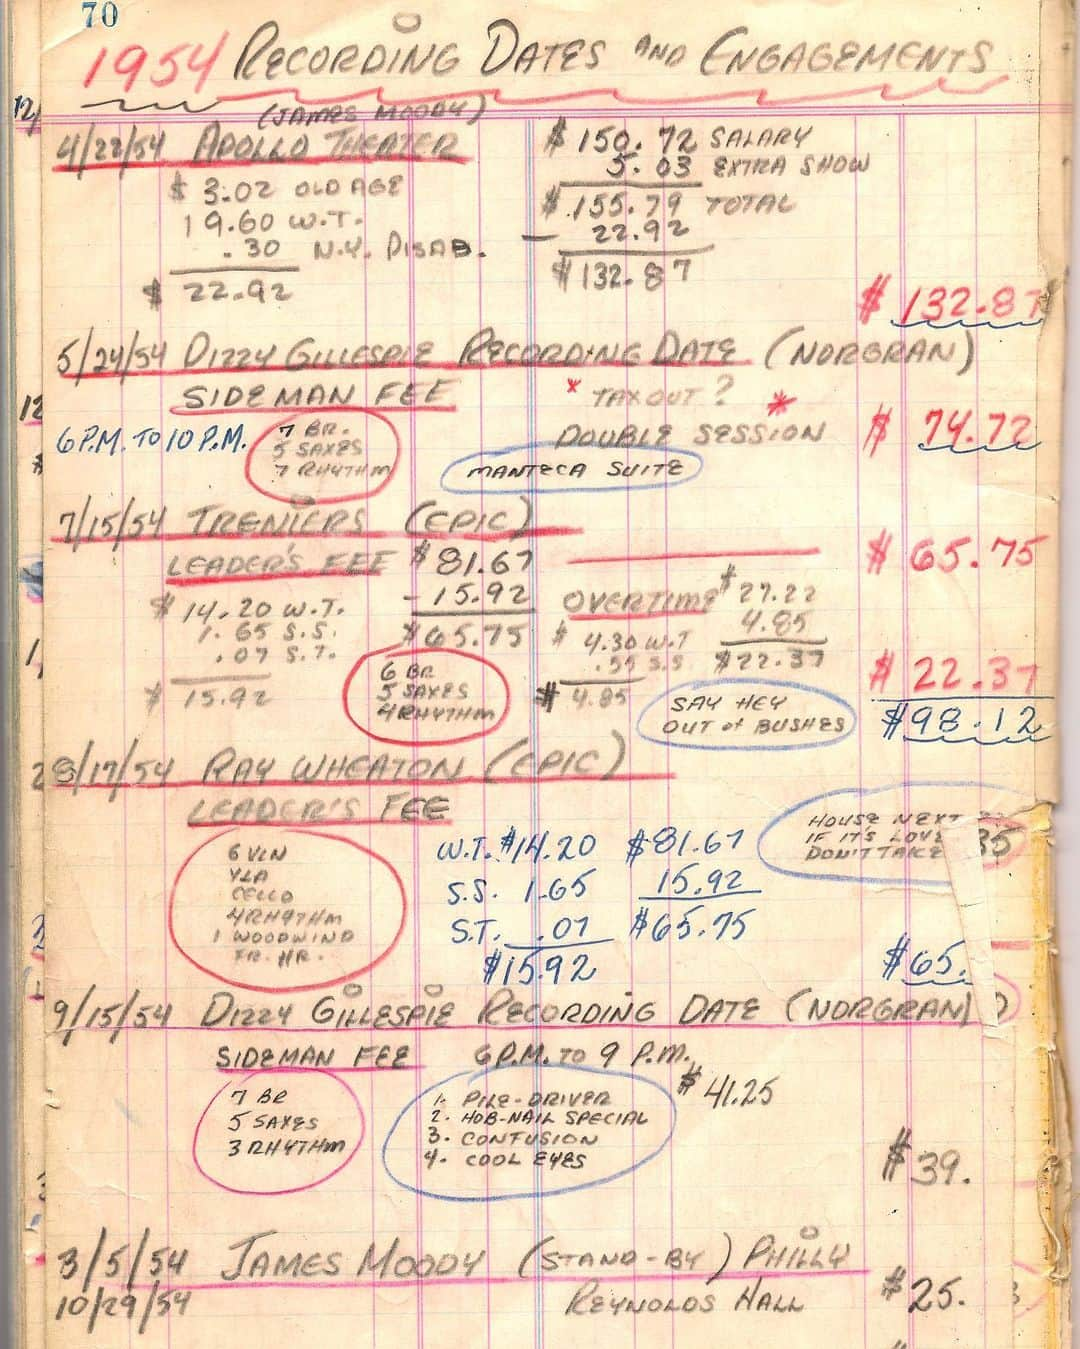 70
1954 RECORDING DATES AND ENGAGEMENTS
(JAMES MOODY)
4/22/54 APOLLO THEATER
$ 150.72 SALARY
5.03 EXTRA SHOW
$ 3.02 OLD AGE
$ 155.79 TOTAL
19.60 W.T.
- 22.92
.30 N.Y. DISAB.
$ 132.87
$ 22.92
$ 132.87
5/24/54 DIZZY GILLESPIE RECORDING DATE (NORGRAN)
SIDEMAN FEE
* TAX OUT? *
6 P.M. TO 10 P.M.
7 BR.
5 SAXES
7 RHYTHM
DOUBLE SESSION
$ 74.72
MANTECA SUITE
7/15/54 TRENIERS (EPIC)
LEADER'S FEE $81.67
- 15.92
$65.75
$ 65.75
$ 14.20 W.T.
1.65 S.S.
.07 S.T.
$ 15.92
OVERTIME $27.22
4.85
$22.37
$ 4.30 W.T
.55 S.S
$ 4.85
$ 22.37
$98.12
6 BR
5 SAXES
4 RHYTHM
SAY HEY
OUT of BUSHES
8/17/54 RAY WHEATON (EPIC)
LEADER'S FEE
HOUSE NEXT
IF IT'S LOVE
DON'T TAKE
35
6 VLN
VLA
CELLO
4 RHYTHM
1 WOODWIND
FR. HR.
W.T. $14.20 $81.67
S.S. 1.65 15.92
S.T. .07 $65.75
$15.92
$65.
9/15/54 DIZZY GILLESPIE RECORDING DATE (NORGRAN)
SIDEMAN FEE 6 P.M. TO 9 P.M.
$41.25
7 BR
5 SAXES
3 RHYTHM
1. PILE-DRIVER
2. HOB-NAIL SPECIAL
3. CONFUSION
4. COOL EYES
$39.
3/5/54 JAMES MOODY (STAND-BY) PHILLY
10/29/54 REYNOLDS HALL
$25.